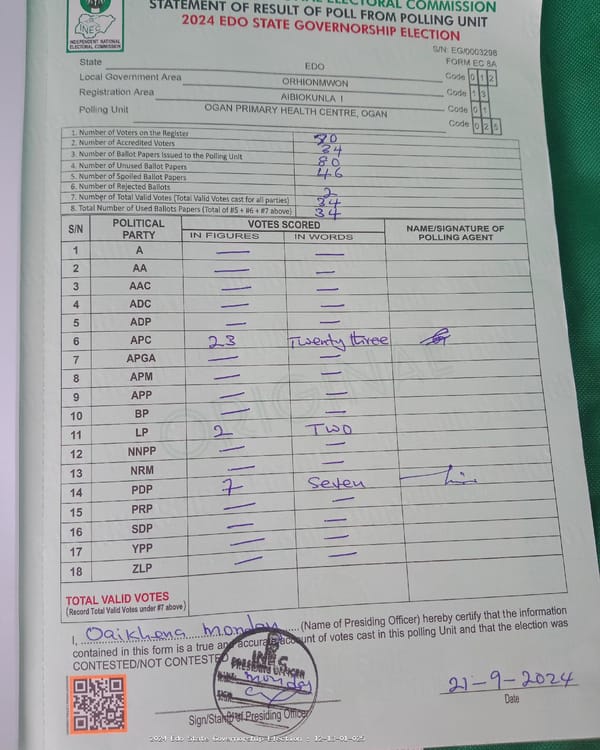 ELECTORAL COMMISSION
STATEMENT OF RESULT OF POLL FROM POLLING UNIT
2024 EDO STATE GOVERNORSHIP ELECTION
INEC
INDEPENDENT NATIONAL ELECTORAL COMMISSION
S/N: EG/0003298
FORM EC 8A
State EDO Code 0 1 2
Local Government Area ORHIONMWON Code 1 3
Registration Area AIBIOKUNLA I Code 0 1
Polling Unit OGAN PRIMARY HEALTH CENTRE, OGAN Code 0 2 5
1. Number of Voters on the Register 80
2. Number of Accredited Voters 34
3. Number of Ballot Papers Issued to the Polling Unit 80
4. Number of Unused Ballot Papers 46
5. Number of Spoiled Ballot Papers
6. Number of Rejected Ballots 2
7. Number of Total Valid Votes (Total Valid Votes cast for all parties) 34
8. Total Number of Used Ballots Papers (Total of #5 + #6 + #7 above) 34
S/N POLITICAL PARTY VOTES SCORED NAME/SIGNATURE OF POLLING AGENT
IN FIGURES IN WORDS
1 A — —
2 AA — —
3 AAC — —
4 ADC — —
5 ADP — —
6 APC 23 Twenty three
7 APGA — —
8 APM — —
9 APP — —
10 BP — —
11 LP 2 TWO
12 NNPP — —
13 NRM — —
14 PDP 7 Seven
15 PRP — —
16 SDP — —
17 YPP — —
18 ZLP — —
ORIGINAL
TOTAL VALID VOTES
(Record Total Valid Votes under #7 above)
I, Oaikhena Monday (Name of Presiding Officer) hereby certify that the information
contained in this form is a true and accurate account of votes cast in this polling Unit and that the election was
CONTESTED/NOT CONTESTED
INEC
PRESIDING OFFICER
Monday
21-9-2024
Sign/Stamp of Presiding Officer
Date
2024 Edo State Governorship Election : 12-13-01-025